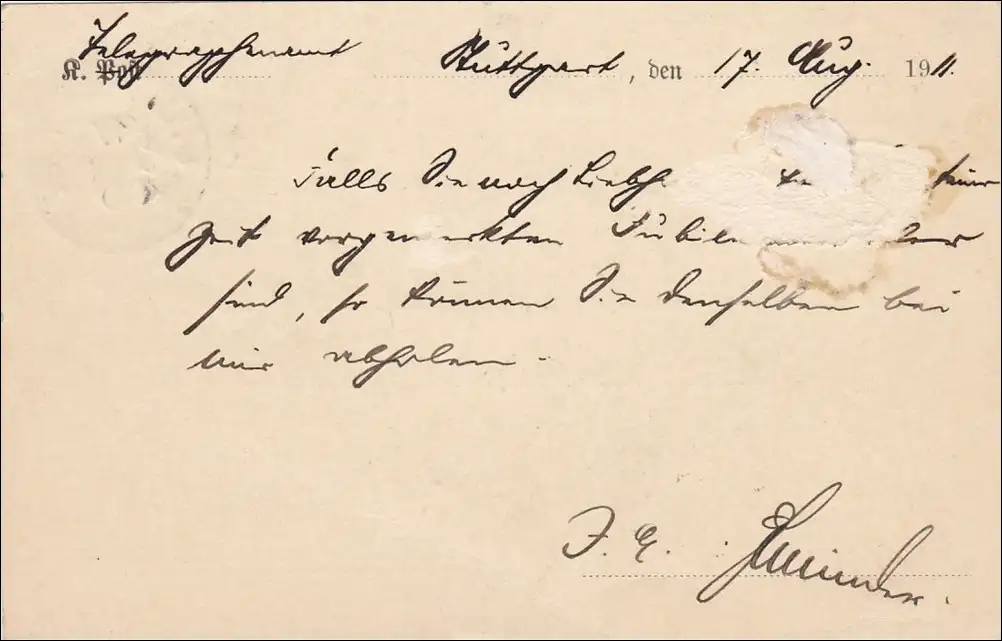 Telegraphenamt
K. Post Stuttgart, den 17. Aug. 1911.
Falls Sie noch Liebh
zeit vorgemerkten
sind, so können Sie denselben bei
mir abholen.